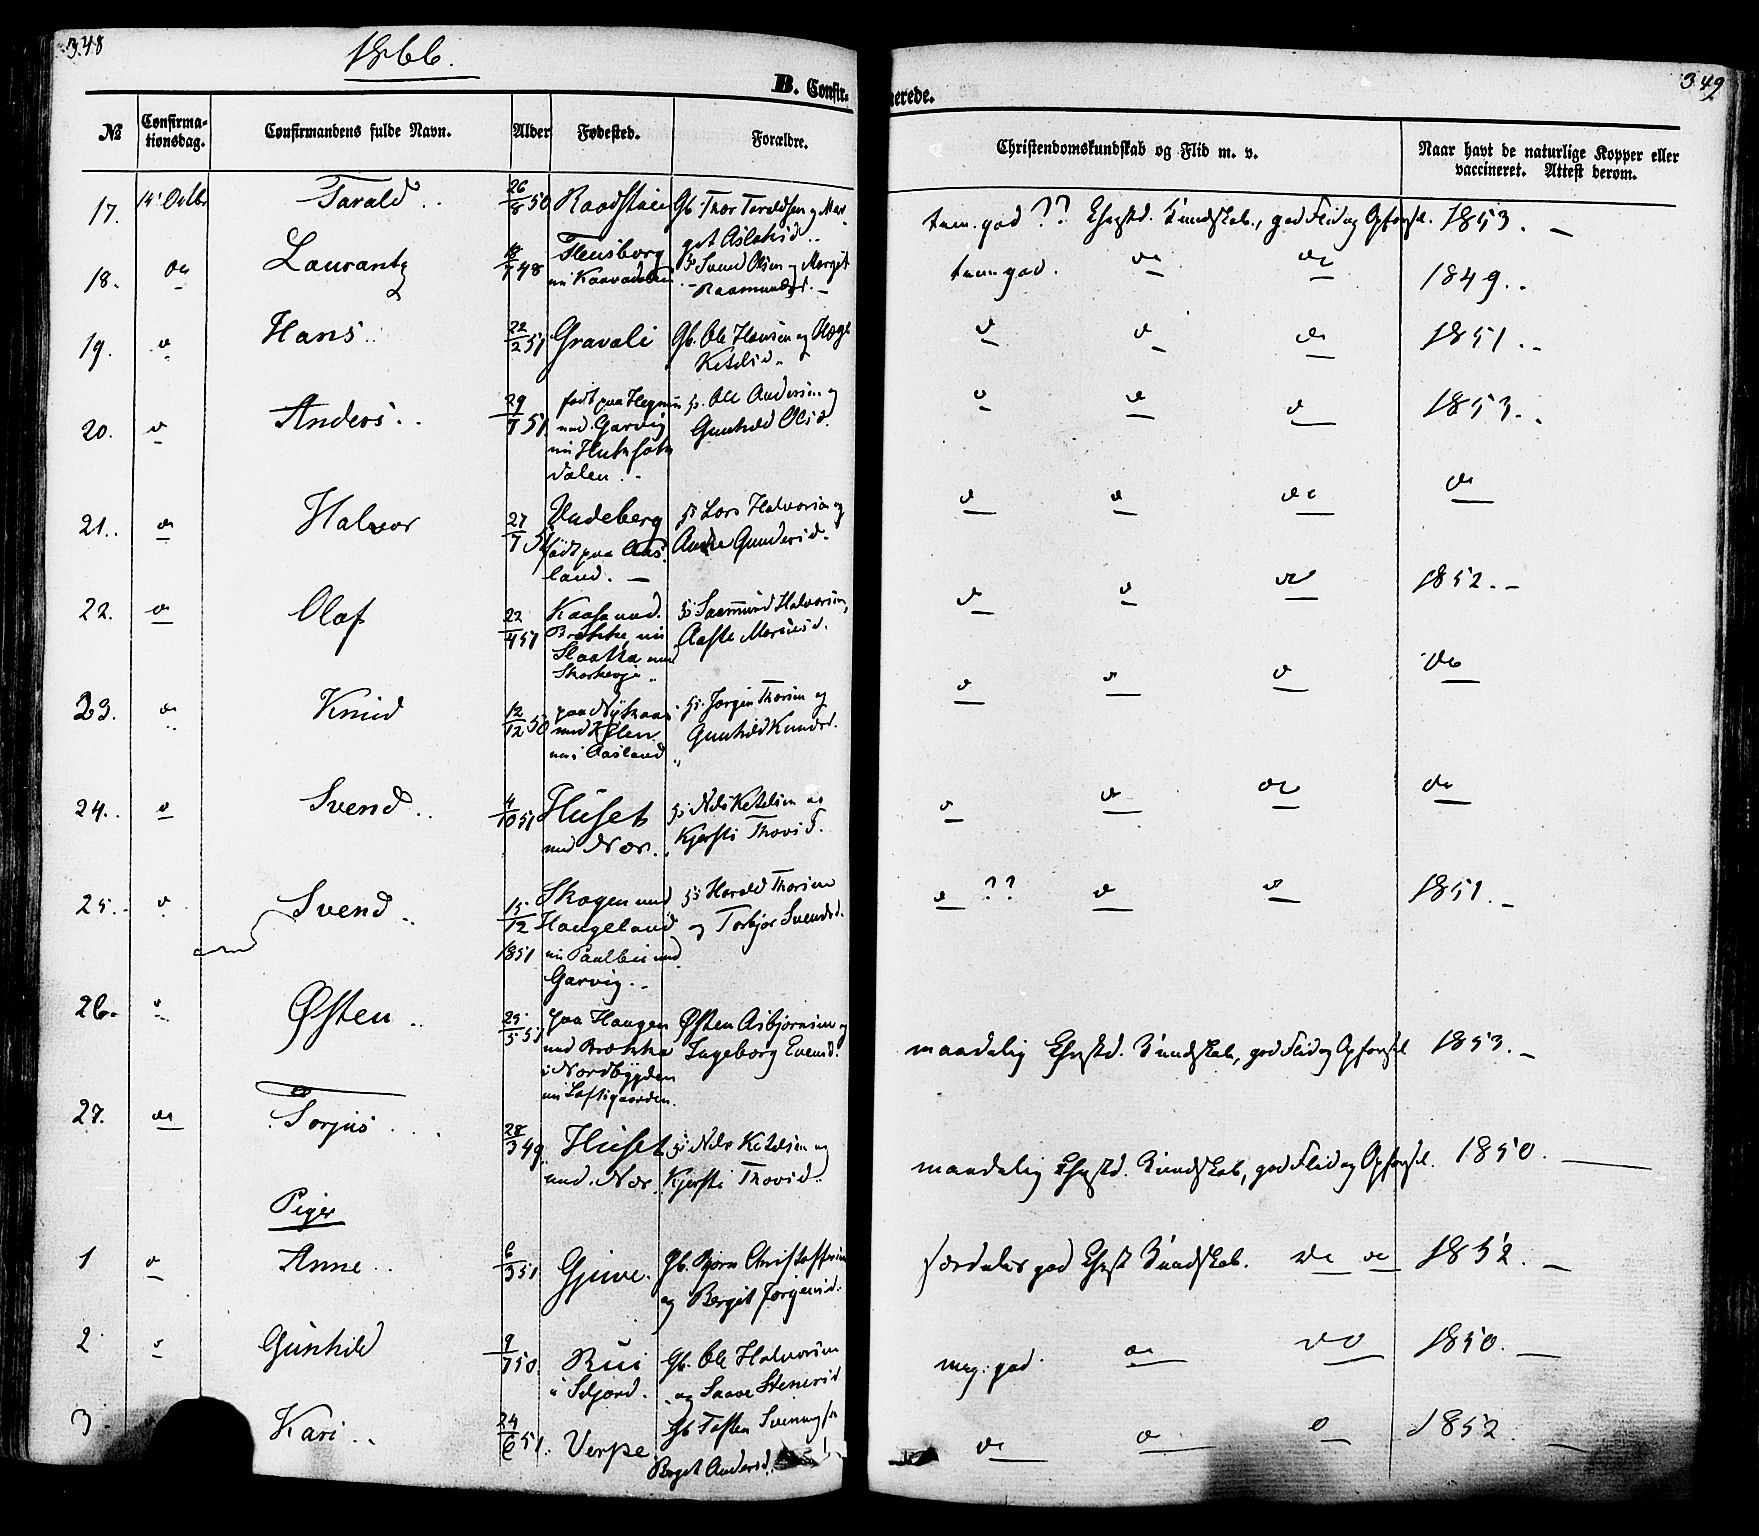 348
1866.
B. Confir-
merede.
349
№
Confirma-
tionsdag.
Confirmandens fulde Navn.
Alder
Fødested.
Forældre.
Christendomskundskab og Flid m. v.
Naar havt de naturlige Kopper eller
vaccineret. Attest derom.
17. 14' Octbr Tarald.. 26/8 50 Gb. Thor Taraldsen og Mar-
get Aslaksd..
god ?? Chrstd. Kundskab., god Flid og Opførsel. 1853. –
18. do 48 Flensborg
nu
Svend Olsen og Marget
god. do do 1849..
19. do Hans.. 22/2 51 Gravali Gb. Ole Hansen og Hæge
Ketilsd..
do do do 1851..
20. do Anders.. 29/1 51 født paa
und. Garvig
nu
dalen..
Ole Andersen og
Gunhild Olsd.
do do do 1853..
21.. do Halvor 27/7 51
født paa Aas-
land. –
Lars Halvorsen og
Gundersd.
do do do do
22. do Olaf 22/4 51 Kaasa und.
Brække nu
Slaatta und
Halvorsen,
Aaste
do do do 1852. –
23. do Knud 12/12 50 paa
und
nu i Aasland
Jørgen Thorsen og
Gunhild Knudsd.
do do do do
24.. do Svend.. 4/10 51 Huset
und Nær.
Nils Ketilsen og
Kjersti Thovsd.
do do do do
25.. do Svend.. 15/12 1851 Skogen und
Haugeland
nu und
Garvig..
Harald Thorsen
og Torbjør Svendsd.
do ?? do do 1851. –
26. do Østen.. 25/5 51 paa Haugen
und Brække
i Nordbygden
nu Loftsgaarden.
Østen Asbjørnsen og
Ingeborg Evensd.
maadelig Chrstd. Kundskab, god Flid og Opførsel 1853. –
27. do Torjus... 28/3 49 Huset
und. Nær.
Nils Ketilsen og
Kjersti Thovsd..
maadelig Chrstd. Kundskab, god Flid og Opførsel. 1850. –
Piger
1 do Anne.. 6/3 51 Gjuve. Gb. Bjørn Christophersen
og Bergit Jørgensd.
særdeles god Chrst Kundskab. do do 1852. –
2 do Gunhild 9/7 50. Rui
i Seljord.
Gb. Ole Halvorsen
og Saave Stenersd
meg. god. do do 1850. –
3 Kari.. 24/6 51. Verpe. Gb Tosten
Berget Andersd.
do do do 1852. –